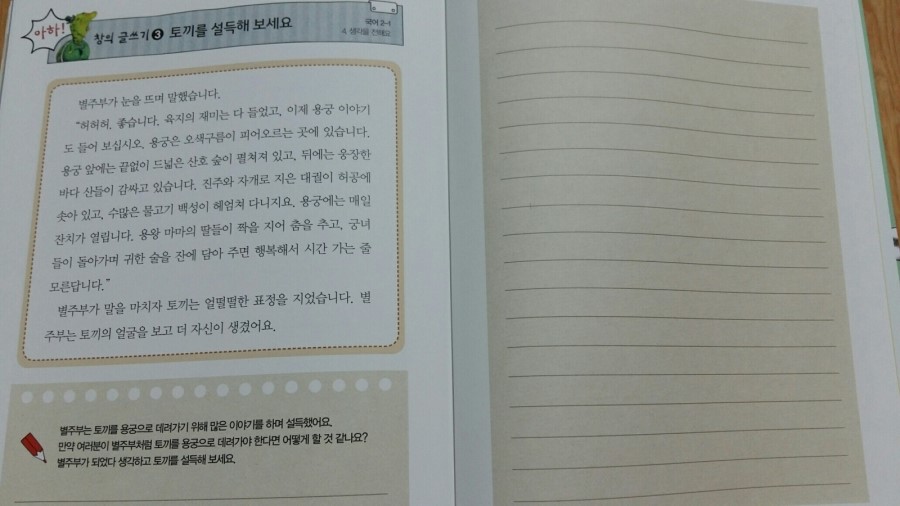 아하!
창의 글쓰기 3 토끼를 설득해 보세요
국어 2-1
4. 생각을 전해요
별주부가 눈을 뜨며 말했습니다.
"허허허. 좋습니다. 육지의 재미는 다 들었고, 이제 용궁 이야기
도 들어 보십시오. 용궁은 오색구름이 피어오르는 곳에 있습니다.
용궁 앞에는 끝없이 드넓은 산호 숲이 펼쳐져 있고, 뒤에는 웅장한
바다 산들이 감싸고 있습니다. 진주와 자개로 지은 대궐이 허공에
솟아 있고, 수많은 물고기 백성이 헤엄쳐 다니지요. 용궁에는 매일
잔치가 열립니다. 용왕 마마의 딸들이 짝을 지어 춤을 추고, 궁녀
들이 돌아가며 귀한 술을 잔에 담아 주면 행복해서 시간 가는 줄
모른답니다."
별주부가 말을 마치자 토끼는 얼떨떨한 표정을 지었습니다. 별
주부는 토끼의 얼굴을 보고 더 자신이 생겼어요.
별주부는 토끼를 용궁으로 데려가기 위해 많은 이야기를 하며 설득했어요.
만약 여러분이 별주부처럼 토끼를 용궁으로 데려가야 한다면 어떻게 할 것 같나요?
별주부가 되었다 생각하고 토끼를 설득해 보세요.